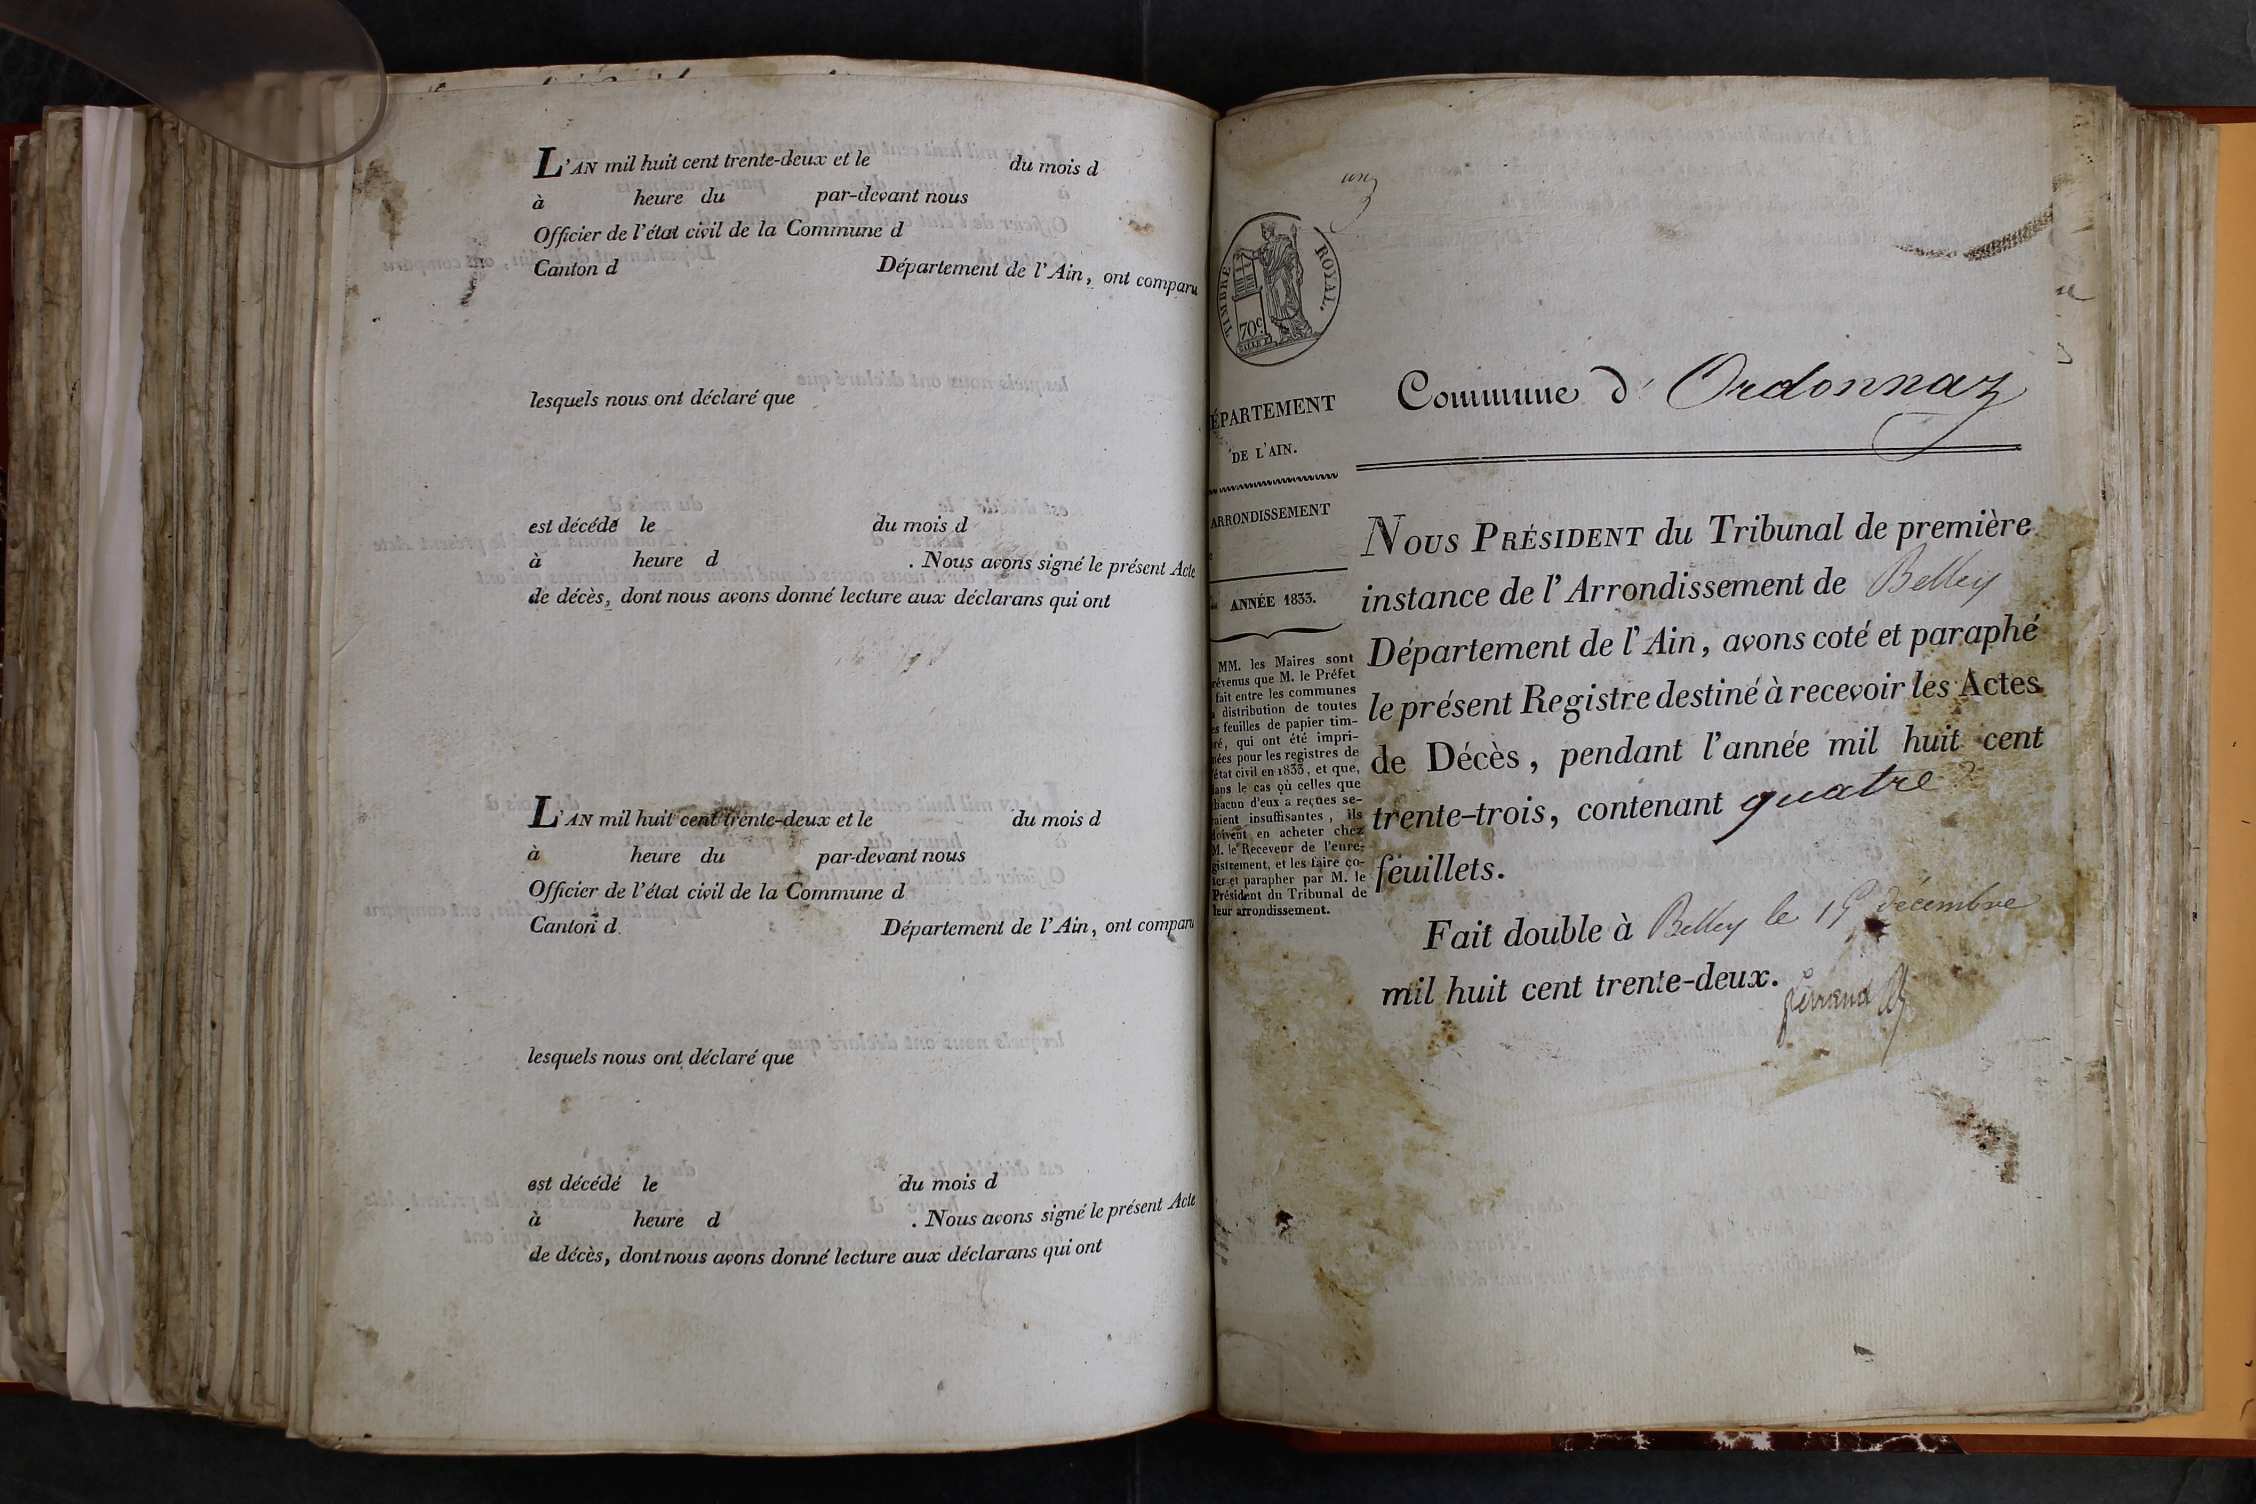 L'AN mil huit cent trente-deux et le du mois d
à heure du par-devant nous
Officier de l'état civil de la Commune d
Canton d Département de l'Ain, ont comparu
lesquels nous ont déclaré que
est décédé le du mois d
à heure d . Nous avons signé le présent Acte
de décès, dont nous avons donné lecture aux déclarans qui ont
L'AN mil huit cent trente-deux et le du mois d
à heure du par-devant nous
Officier de l'état civil de la Commune d
Canton d Département de l'Ain, ont comparu
lesquels nous ont déclaré que
est décédé le du mois d
à heure d . Nous avons signé le présent Acte
de décès, dont nous avons donné lecture aux déclarans qui ont
un
TIMBRE ROYAL.
70c
ÉPARTEMENT
DE L'AIN.
ARRONDISSEMENT
ANNÉE 1833.
MM. les Maires sont
révenus que M. le Préfet
fait entre les communes
distribution de toutes
es feuilles de papier tim-
ré, qui ont été impri-
mées pour les registres de
état civil en 1833, et que,
dans le cas où celles que
hacun d'eux a reçues se-
raient insuffisantes, ils
doivent en acheter chez
M. le Receveur de l'enre-
gistrement, et les faire co-
ter et parapher par M. le
Président du Tribunal de
leur arrondissement.
Commune d' Ordonnaz
NOUS PRÉSIDENT du Tribunal de première
instance de l'Arrondissement de Belley
Département de l'Ain, avons coté et paraphé
le présent Registre destiné à recevoir les Actes
de Décès, pendant l'année mil huit cent
trente-trois, contenant quatre
feuillets.
Fait double à Belley le 15 décembre
mil huit cent trente-deux.